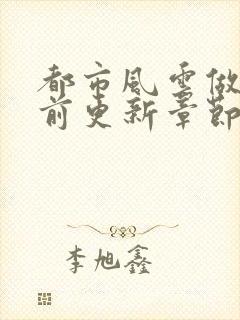 都市風雲做
前更新章節
李旭鑫